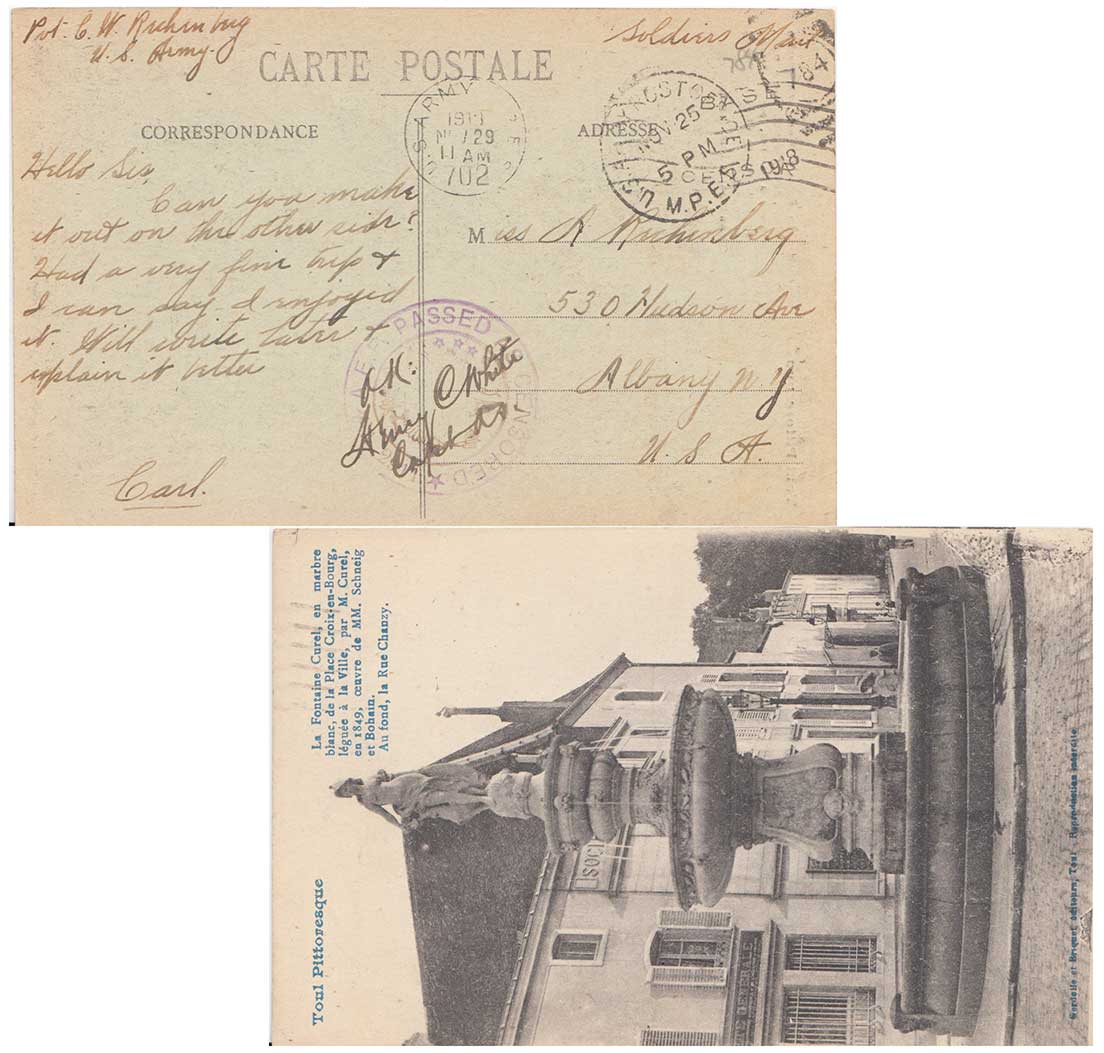 Pvt. C. W. Richenberg
U. S. Army.
Soldiers Mail
CARTE POSTALE
CORRESPONDANCE
ADRESSE
784
U.S. ARMY
NOV 29
11 AM
702
NOV 25
5 PM
U.S. M.P.E.S.
1918
Hello Sis
Can you make
it out on the other side?
Had a very fine trip &
I can say I enjoyed
it. Will write later &
explain it better
Carl.
Miss R Richenberg
530 Hudson Ave
Albany N Y.
U. S A.
A.E.F. PASSED AS CENSORED
O.K.
Henry C White
Capt
Toul Pittoresque
La Fontaine Curel, en marbre
blanc, de la Place Croix-en-Bourg,
léguée à la Ville, par M. Curel,
en 1849, œuvre de MM. Schneig
et Bohain.
Au fond, la Rue Chanzy.
SOCI
TE GENERALE
et Briquet éditeurs, Toul - Reproduction interdite